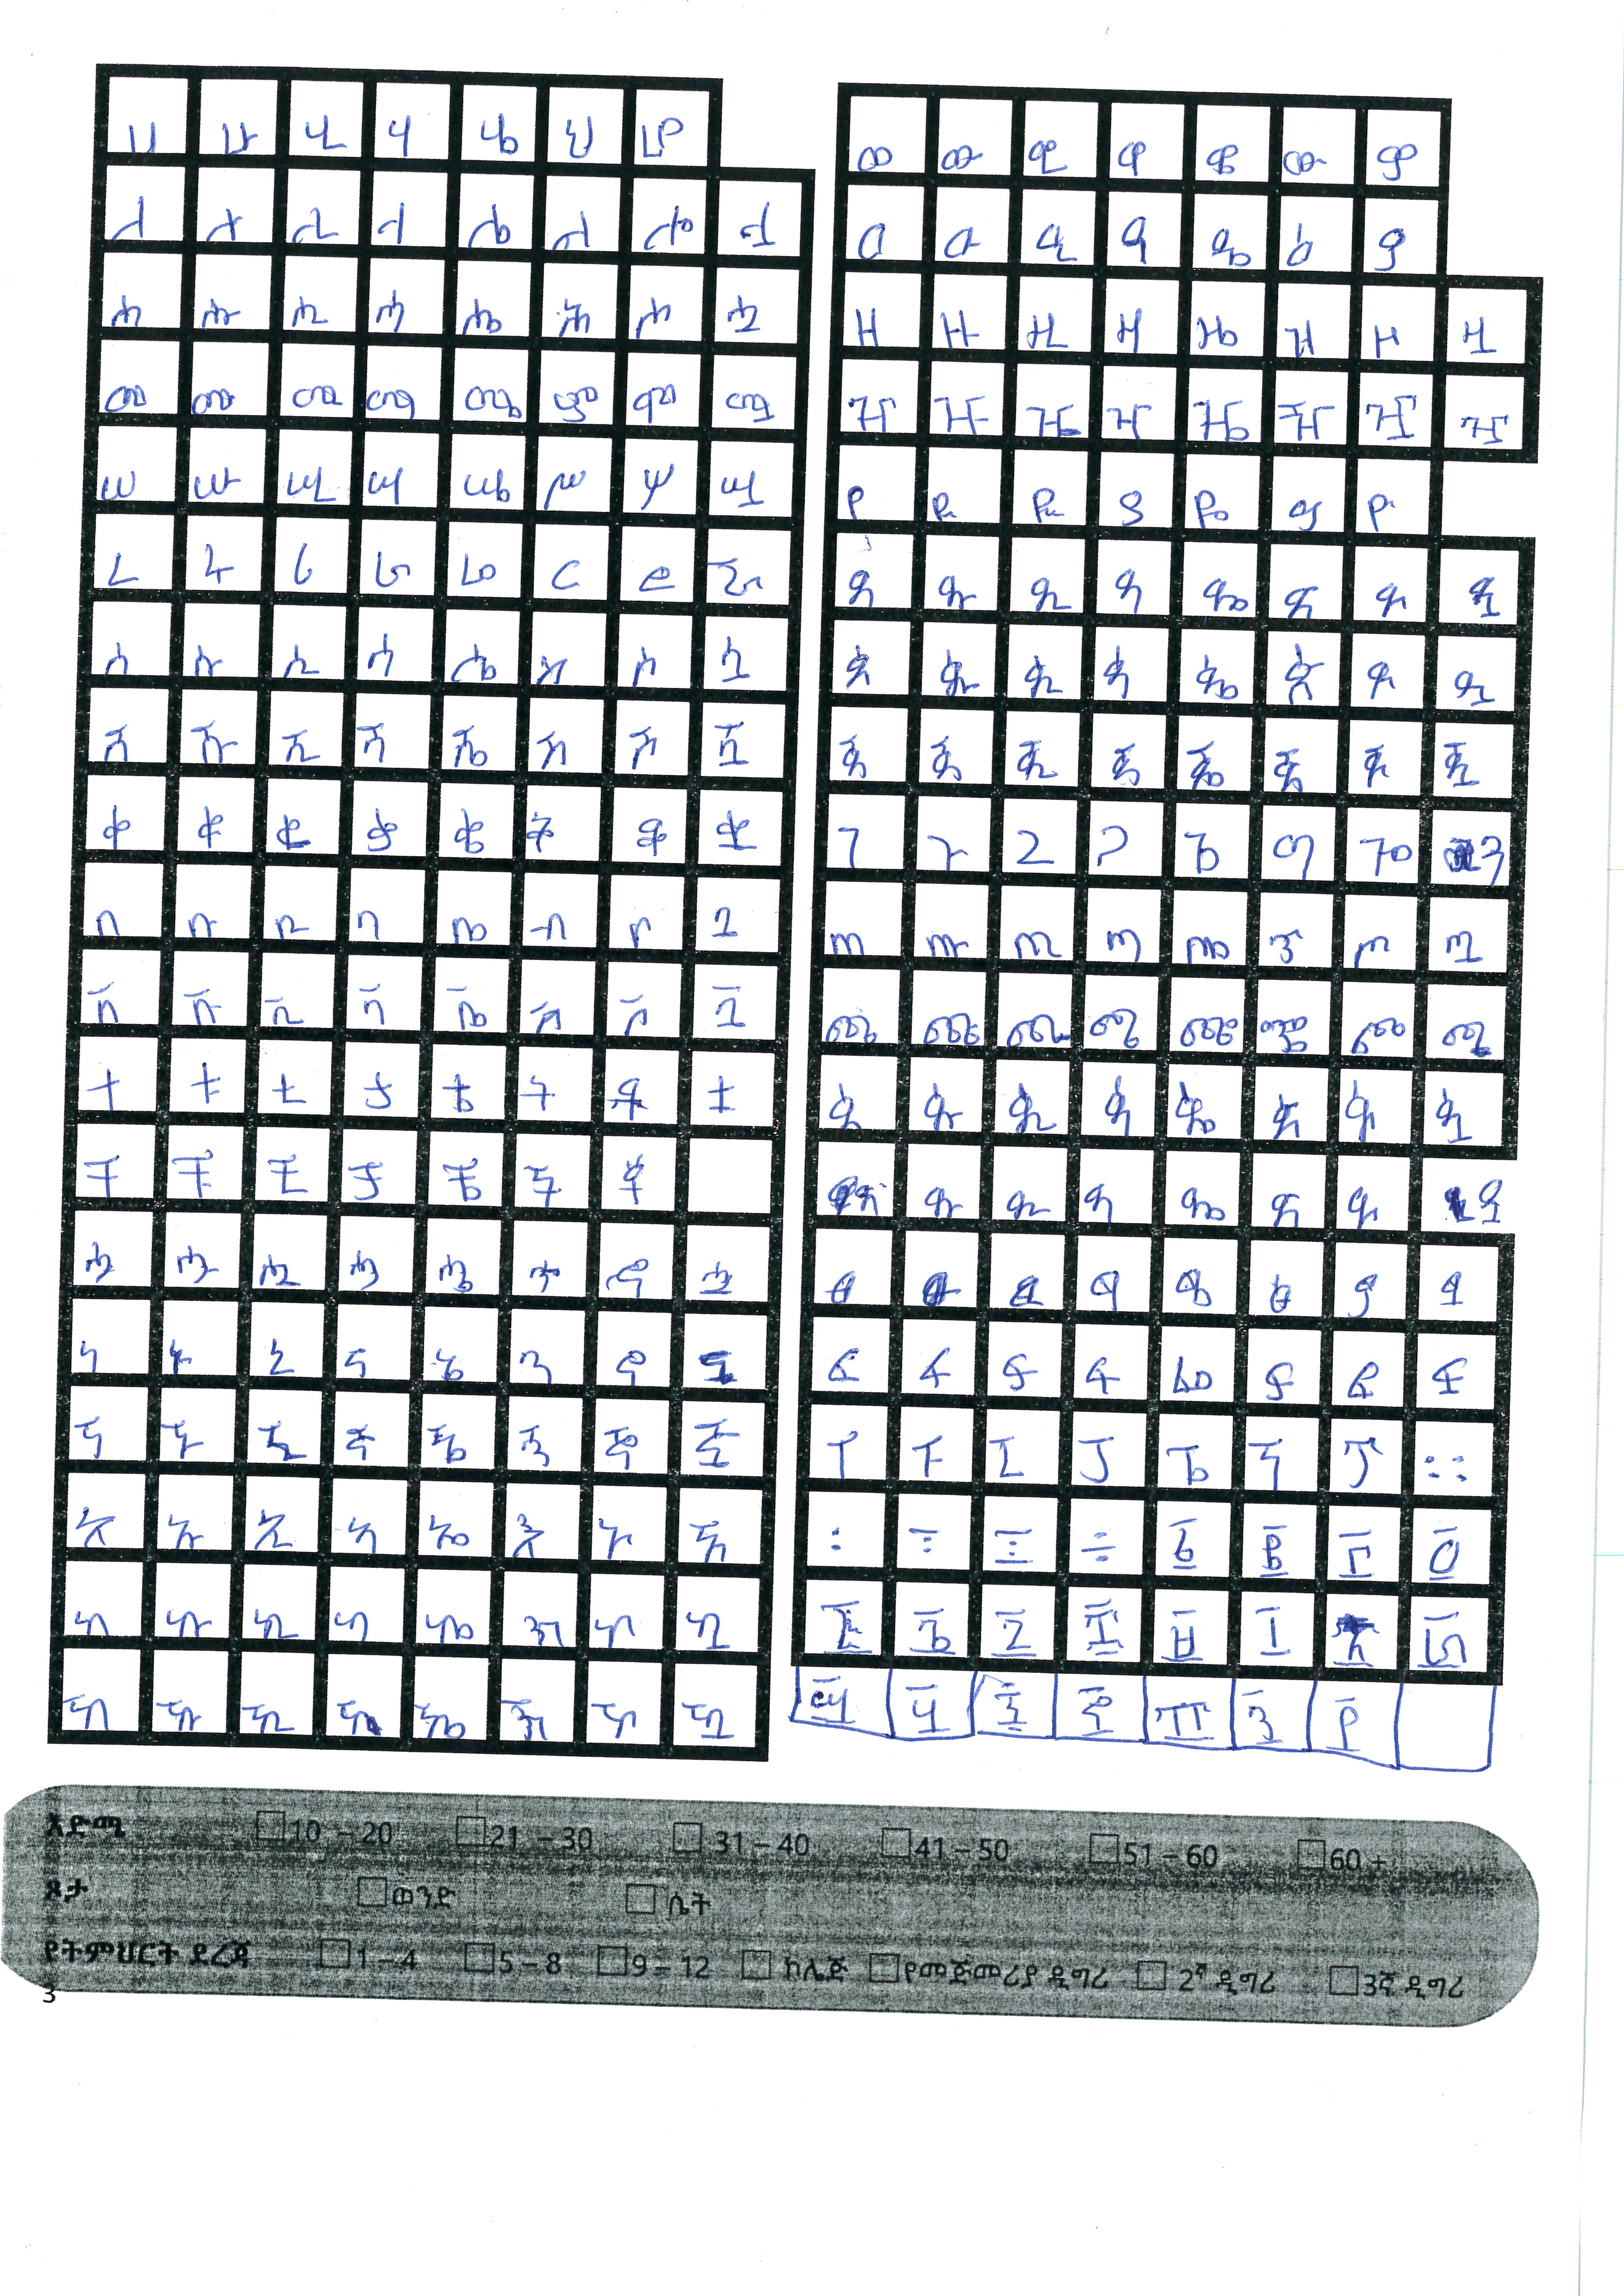 ሀ ሁ ሂ ሃ ሄ ህ ሆ
ለ ሉ ሊ ላ ሌ ል ሎ ሏ
ሐ ሑ ሒ ሓ ሔ ሕ ሖ ሗ
መ ሙ ሚ ማ ሜ ም ሞ ሟ
ሠ ሡ ሢ ሣ ሤ ሥ ሦ ሧ
ረ ሩ ሪ ራ ሬ ር ሮ ሯ
ሰ ሱ ሲ ሳ ሴ ስ ሶ ሷ
ሸ ሹ ሺ ሻ ሼ ሽ ሾ ሿ
ቀ ቁ ቂ ቃ ቄ ቅ ቆ ቋ
በ ቡ ቢ ባ ቤ ብ ቦ ቧ
ቨ ቩ ቪ ቫ ቬ ቭ ቮ ቯ
ተ ቱ ቲ ታ ቴ ት ቶ ቷ
ቸ ቹ ቺ ቻ ቼ ች ቾ
ኀ ኁ ኂ ኃ ኄ ኅ ኆ ኋ
ነ ኑ ኒ ና ኔ ን ኖ ኗ
ኘ ኙ ኚ ኛ ኜ ኝ ኞ ኟ
አ ኡ ኢ ኣ ኤ እ ኦ ኧ
ከ ኩ ኪ ካ ኬ ክ ኮ ኳ
ኸ ኹ ኺ ኻ ኼ ኽ ኾ ዃ
ወ ዉ ዊ ዋ ዌ ው ዎ
ዐ ዑ ዒ ዓ ዔ ዕ ዖ
ዘ ዙ ዚ ዛ ዜ ዝ ዞ ዟ
ዠ ዡ ዢ ዣ ዤ ዥ ዦ ዧ
የ ዩ ዪ ያ ዬ ይ ዮ
ደ ዱ ዲ ዳ ዴ ድ ዶ ዷ
ዸ ዹ ዺ ዻ ዼ ዽ ዾ ዿ
ጀ ጁ ጂ ጃ ጄ ጅ ጆ ጇ
ገ ጉ ጊ ጋ ጌ ግ ጎ ጓ
ጠ ጡ ጢ ጣ ጤ ጥ ጦ ጧ
ጨ ጩ ጪ ጫ ጬ ጭ ጮ ጯ
ጰ ጱ ጲ ጳ ጴ ጵ ጶ ጷ
ጸ ጹ ጺ ጻ ጼ ጽ ጾ ጿ
ፀ ፁ ፂ ፃ ፄ ፅ ፆ ፇ
ፈ ፉ ፊ ፋ ፌ ፍ ፎ ፏ
ፐ ፑ ፒ ፓ ፔ ፕ ፖ ።
፡ ፣ ፤ ÷ ፩ ፪ ፫ ፬
፭ ፮ ፯ ፰ ፱ ፲ ፳ ፴
፵ ፶ ፷ ፸ ፹ ፺ ፻
እድሜ 10 – 20 21 – 30 31 – 40 41 – 50 51 – 60 60 +
ጾታ ወንድ ሴት
የትምህርት ደረጃ 1 – 4 5 – 8 9 – 12 ኮሌጅ የመጀመሪያ ዲግሪ 2ኛ ዲግሪ 3ኛ ዲግሪ
3